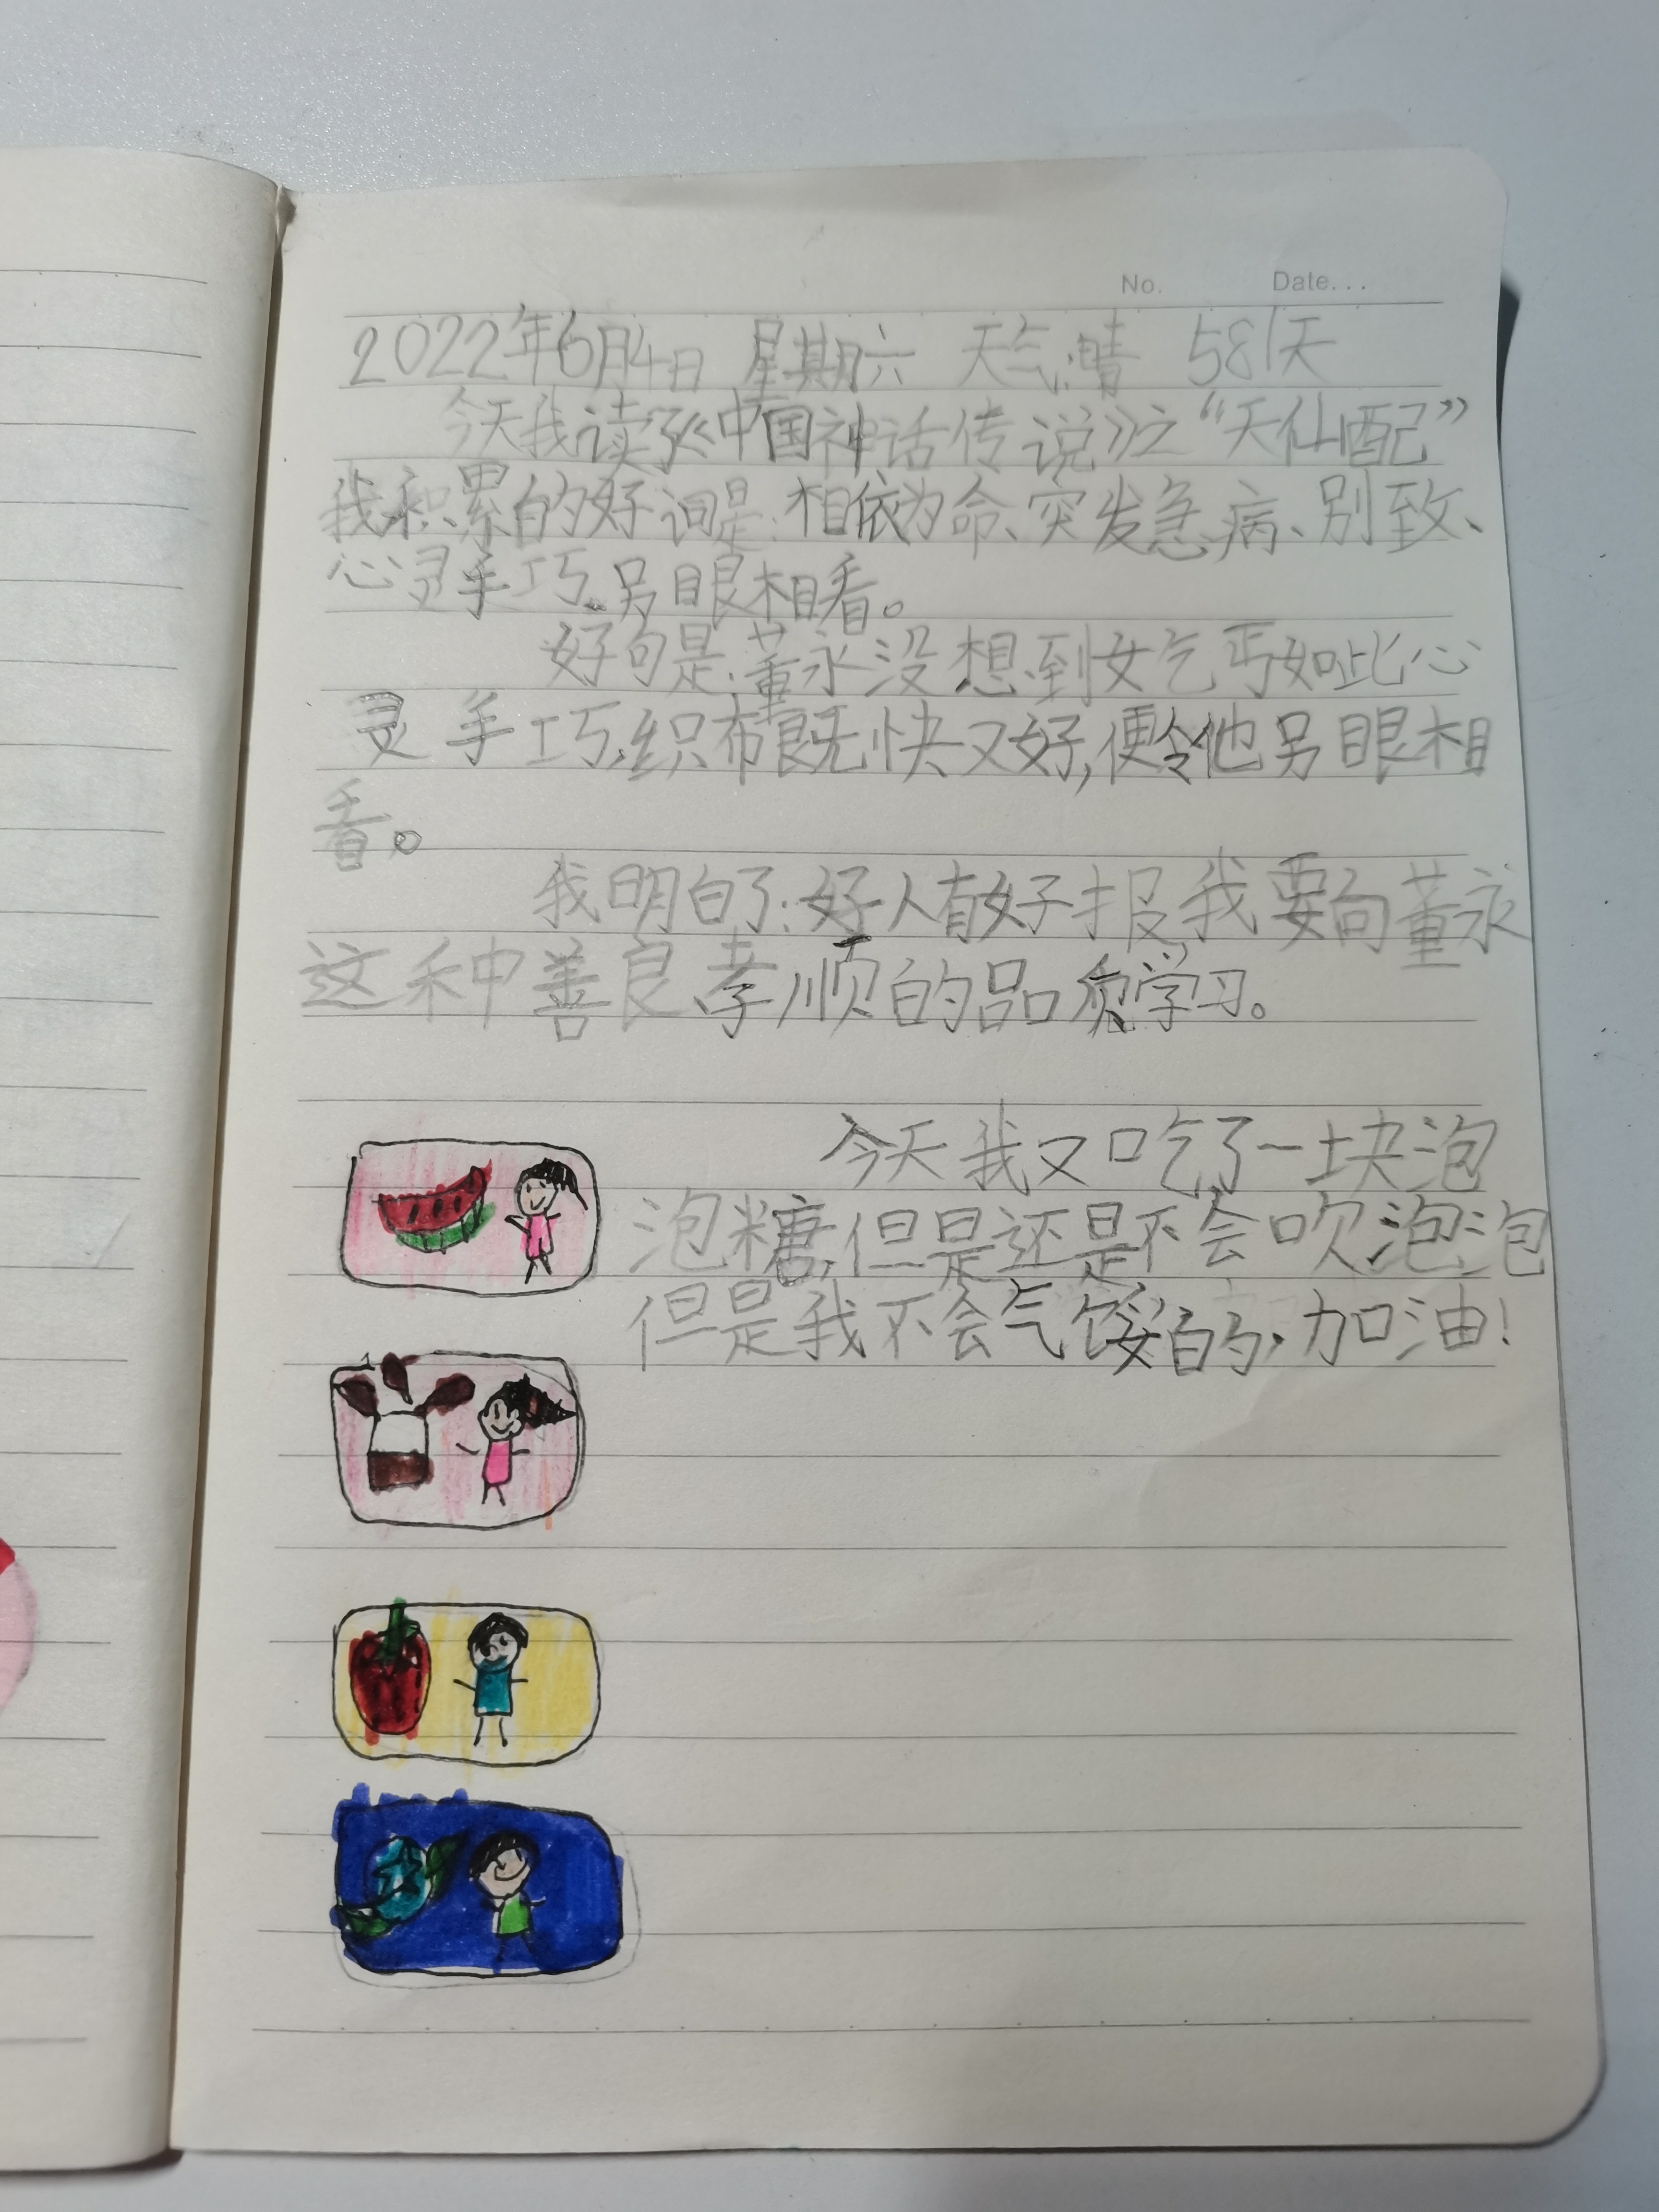 No. Date...
2022年6月4日 星期六 天气:晴 581天
今天我读了《中国神话传说》之“天仙配”
我积累的好词是:相依为命、突发急病、别致、
心灵手巧、另眼相看。
好句是:董永没想到女乞丐如此心
灵手巧,织布既快又好,便令他另眼相
看。
我明白了:好人有好报我要向董永
这种善良孝顺的品质学习。
今天我又口吃了一块泡
泡糖,但是还是不会吹泡泡
但是我不会气馁的,加油!